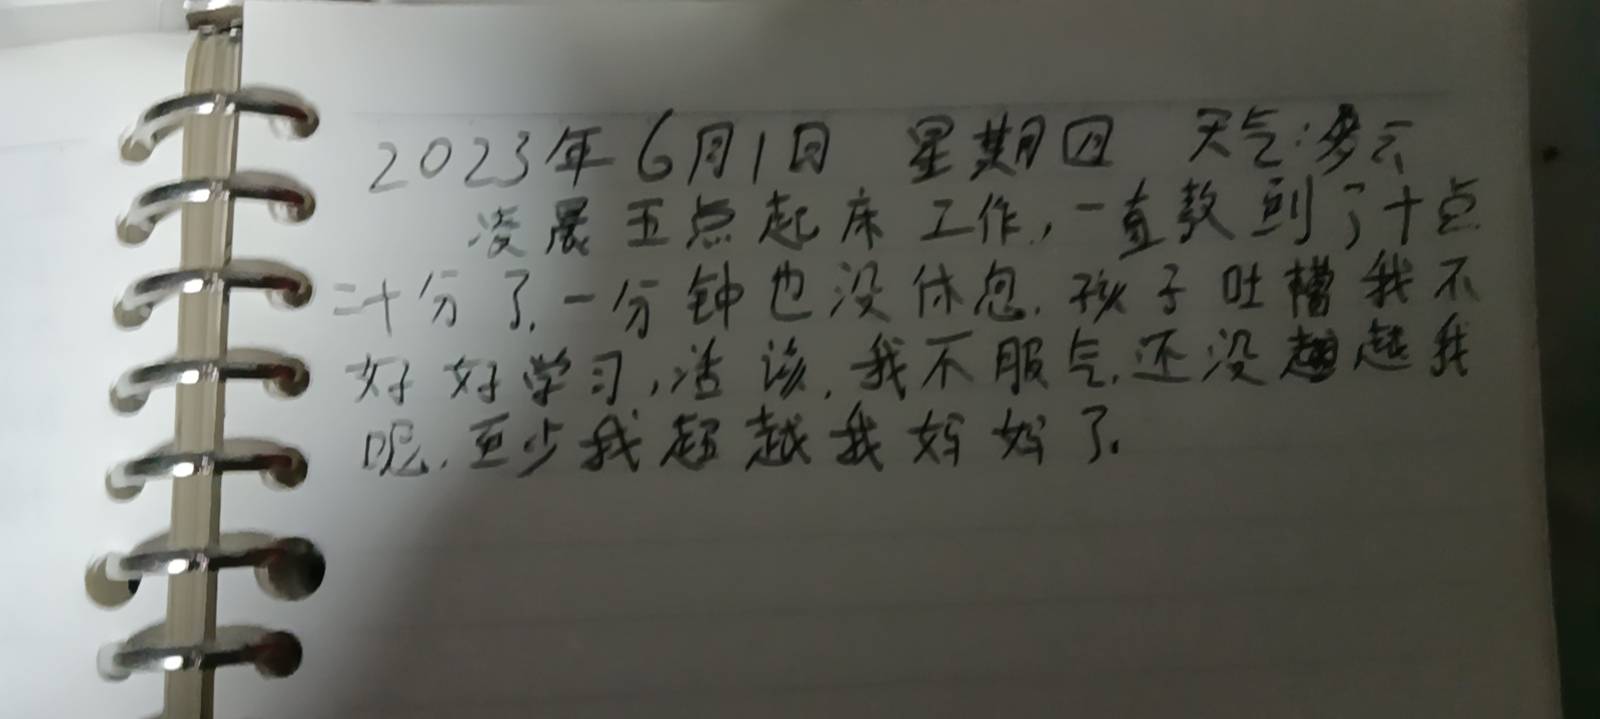 2023年6月1日 星期四 天气:多云
凌晨五点起床工作,一直熬到了十点
二十分了,一分钟也没休息.孩子吐槽我不
好好学习,活该,我不服气.还没超越我
呢.至少我超越我妈妈了.